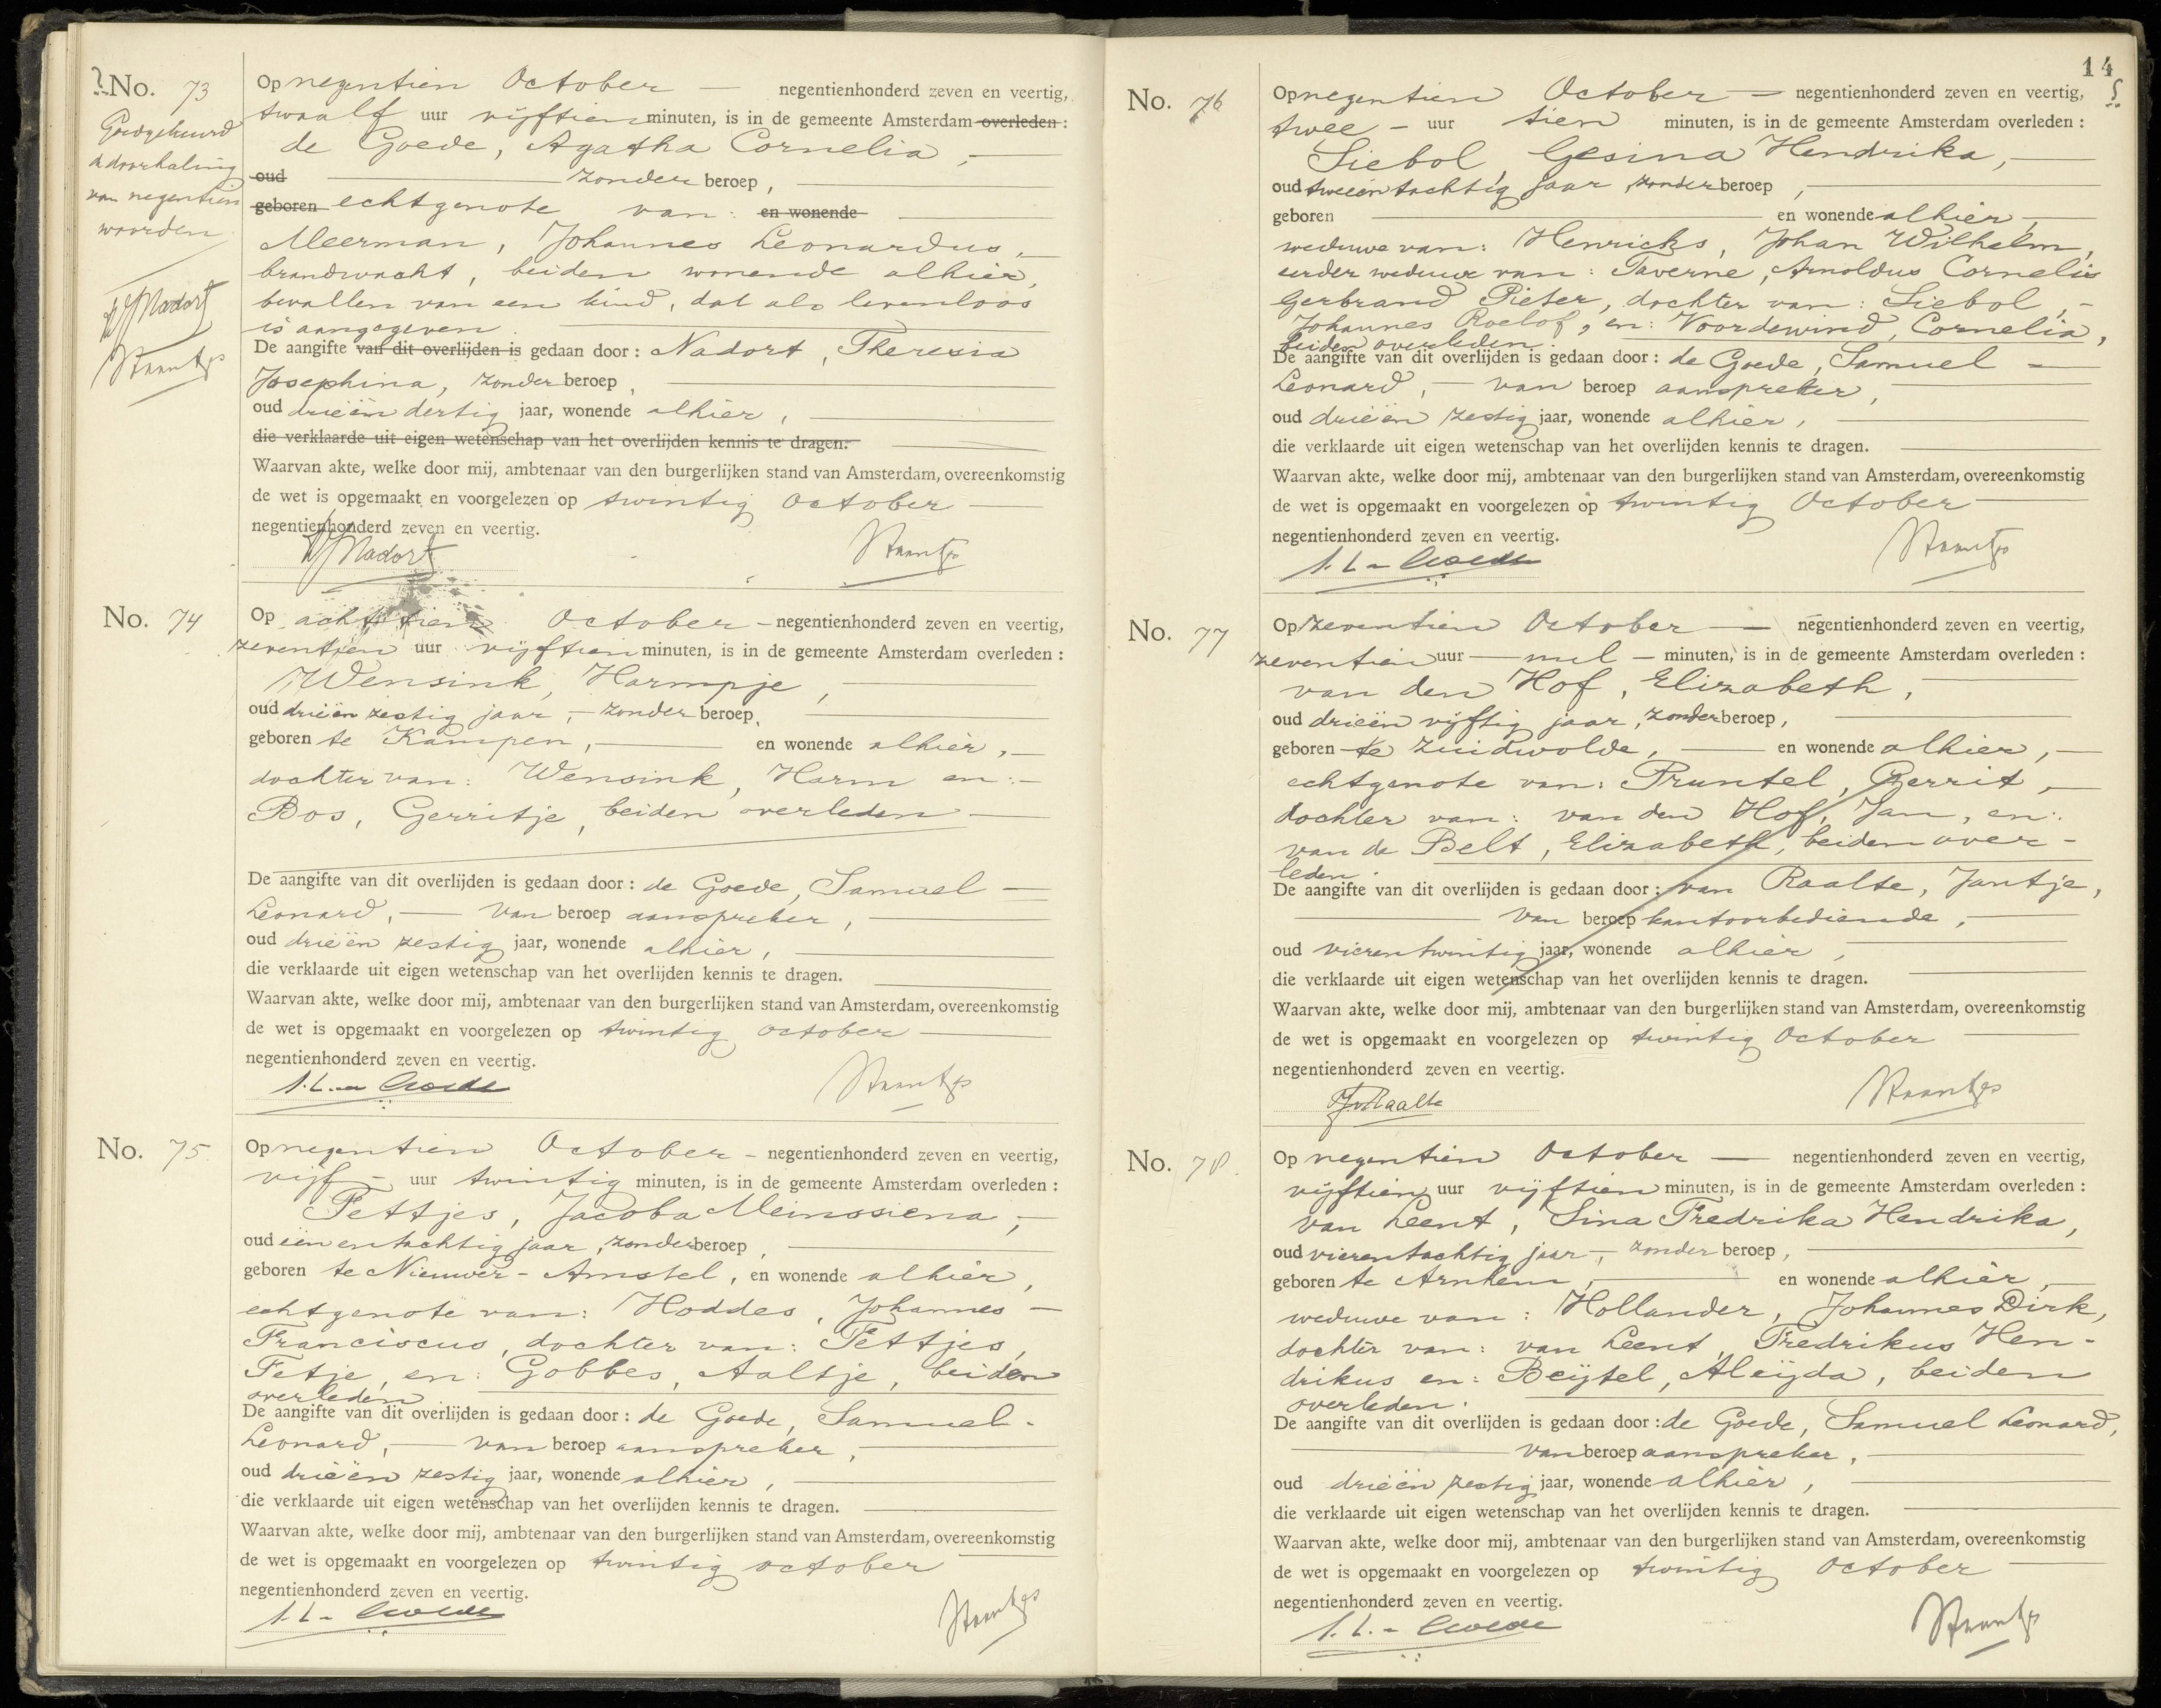 No. 73
Goedgekeurd
d doorhaling
van negentien
woorden
Nadort
Op negentien October — negentienhonderd zeven en veertig,
twaalf uur vijftien minuten, is in de gemeente Amsterdam overleden :
de Goede, Agatha Cornelia, —
oud — zonder beroep, —
geboren echtgenote van: en wonende —
Meerman, Johannes Leonardus, —
brandwacht, beiden wonende alhier,
bevallen van een kind, dat als levenloos
is aangegeven. —
De aangifte van dit overlijden is gedaan door : Nadort, Theresia
Josephina, zonder beroep, —
oud drieën dertig jaar, wonende alhier, —
die verklaarde uit eigen wetenschap van het overlijden kennis te dragen. —
Waarvan akte, welke door mij, ambtenaar van den burgerlijken stand van Amsterdam, overeenkomstig
de wet is opgemaakt en voorgelezen op twintig October —
negentienhonderd zeven en veertig.
Nadort
No. 74
Op achttien October - negentienhonderd zeven en veertig,
zeventien uur vijftien minuten, is in de gemeente Amsterdam overleden :
Wensink, Harmpje, —
oud drieën zestig jaar, - zonder beroep, —
geboren te Kampen, — en wonende alhier, —
dochter van: Wensink, Harm en: -
Bos, Gerritje, beiden overleden —
De aangifte van dit overlijden is gedaan door : de Goede, Samuel —
Leonard, — van beroep aanspreker, —
oud drieën zestig jaar, wonende alhier, —
die verklaarde uit eigen wetenschap van het overlijden kennis te dragen. —
Waarvan akte, welke door mij, ambtenaar van den burgerlijken stand van Amsterdam, overeenkomstig
de wet is opgemaakt en voorgelezen op twintig october —
negentienhonderd zeven en veertig.
S. L. de Goede
No. 75
Op negentien October - negentienhonderd zeven en veertig,
vijf - uur twintig minuten, is in de gemeente Amsterdam overleden :
Tettjes, Jacoba Meinosiena, -
oud eenentachtig jaar, zonder beroep, —
geboren te Nieuwer-Amstel, en wonende alhier,
echtgenote van: Hoddes, Johannes —
Franciscus, dochter van: Tettjes,
Fetje, en: Gobbes, Aaltje, beiden
overleden. —
De aangifte van dit overlijden is gedaan door : de Goede, Samuel -
Leonard, — van beroep aanspreker, —
oud drieën zestig jaar, wonende alhier, —
die verklaarde uit eigen wetenschap van het overlijden kennis te dragen. —
Waarvan akte, welke door mij, ambtenaar van den burgerlijken stand van Amsterdam, overeenkomstig
de wet is opgemaakt en voorgelezen op twintig october —
negentienhonderd zeven en veertig.
S. L. de Goede
14
No. 76
Op negentien October — negentienhonderd zeven en veertig,
twee - uur tien minuten, is in de gemeente Amsterdam overleden :
Siebol, Gesina Hendrika, —
oud tweeëntachtig jaar, zonder beroep, —
geboren — en wonende alhier, —
weduwe van: Henricks, Johan Wilhelm,
eerder weduwe van: Taverne, Arnoldus Cornelis
Gerbrand Pieter, dochter van: Siebol, -
Johannes Roelof, en: Voordewind, Cornelia,
beiden overleden. —
De aangifte van dit overlijden is gedaan door : de Goede, Samuel -
Leonard, — van beroep aanspreker, —
oud drieën zestig jaar, wonende alhier, —
die verklaarde uit eigen wetenschap van het overlijden kennis te dragen. —
Waarvan akte, welke door mij, ambtenaar van den burgerlijken stand van Amsterdam, overeenkomstig
de wet is opgemaakt en voorgelezen op twintig October —
negentienhonderd zeven en veertig.
S. L. de Goede
No. 77
Op zeventien October — negentienhonderd zeven en veertig,
zeventien uur — nul — minuten, is in de gemeente Amsterdam overleden :
van den Hof, Elizabeth, —
oud drieën vijftig jaar, zonder beroep, —
geboren te Zuidwolde, — en wonende alhier, —
echtgenote van: Pruntel, Gerrit, —
dochter van: van den Hof, Jan, en:
van de Belt, Elizabeth, beiden over-
leden. —
De aangifte van dit overlijden is gedaan door : van Raalte, Jantje,
— van beroep kantoorbediende, —
oud vierentwintig jaar, wonende alhier, —
die verklaarde uit eigen wetenschap van het overlijden kennis te dragen. —
Waarvan akte, welke door mij, ambtenaar van den burgerlijken stand van Amsterdam, overeenkomstig
de wet is opgemaakt en voorgelezen op twintig October —
negentienhonderd zeven en veertig.
J. v. Raalte
No. 78.
Op negentien October — negentienhonderd zeven en veertig,
vijftien uur vijftien minuten, is in de gemeente Amsterdam overleden :
van Leent, Sina Fredrika Hendrika,
oud vierentachtig jaar, - zonder beroep, —
geboren te Arnhem, — en wonende alhier, —
weduwe van: Hollander, Johannes Dirk,
dochter van: van Leent, Fredrikus Hen-
drikus en: Beijtel, Aleijda, beiden
overleden. —
De aangifte van dit overlijden is gedaan door : de Goede, Samuel Leonard,
— van beroep aanspreker, —
oud drieën zestig jaar, wonende alhier, —
die verklaarde uit eigen wetenschap van het overlijden kennis te dragen. —
Waarvan akte, welke door mij, ambtenaar van den burgerlijken stand van Amsterdam, overeenkomstig
de wet is opgemaakt en voorgelezen op twintig October —
negentienhonderd zeven en veertig.
S. L. de Goede